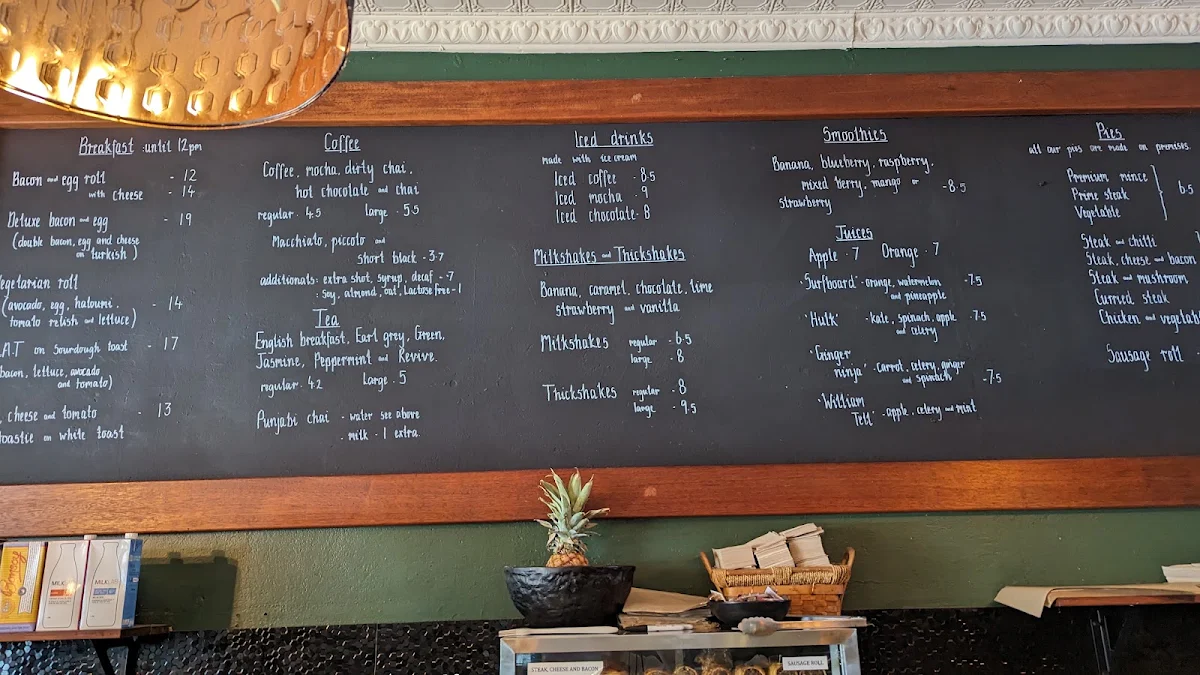 Breakfast until 12pm
Bacon and egg roll - 12
with cheese - 14
Deluxe bacon and egg - 19
(double bacon, egg and cheese
on turkish)
egetarian roll
(avocado, egg, haloumi. - 14
tomato relish and lettuce)
.A.T on sourdough toast - 17
bacon, lettuce, avocado
and tomato)
, cheese and tomato - 13
toastie on white toast
Coffee
Coffee, mocha, dirty chai,
hot chocolate and chai
regular . 4.5 large . 5.5
Macchiato, piccolo and
short black - 3.7
additionals: extra shot, syrup, decaf - .7
: Soy, almond, oat, Lactose free - 1
Tea
English breakfast, Earl grey, Green,
Jasmine, Peppermint and Revive.
regular . 4.2 Large . 5
Punjabi chai - water see above
- milk . 1 extra.
Iced drinks
made with ice cream
Iced coffee - 8.5
Iced mocha - 9
Iced chocolate - 8
Milkshakes and Thickshakes
Banana, caramel, chocolate, lime
strawberry and vanilla
Milkshakes regular - 6.5
large - 8
Thickshakes regular - 8
large - 9.5
Smoothies
Banana, blueberry, raspberry,
mixed berry, mango or - 8.5
strawberry
Juices
Apple . 7 Orange . 7
'Surfboard' - orange, watermelon - 7.5
and pineapple
'Hulk' - kale, spinach, apple - 7.5
and celery
'Ginger
ninja' - carrot, celery, ginger - 7.5
and spinach
'William
Tell' - apple, celery and mint
Pies
all our pies are made on premises.
Premium mince
Prime steak 6.5
Vegetable
Steak and chilli
Steak, cheese and bacon
Steak and mushroom
Curried steak
Chicken and vegetab
Sausage roll
MILK
MILK
STEAK, CHEESE AND BACON
SAUSAGE ROLL